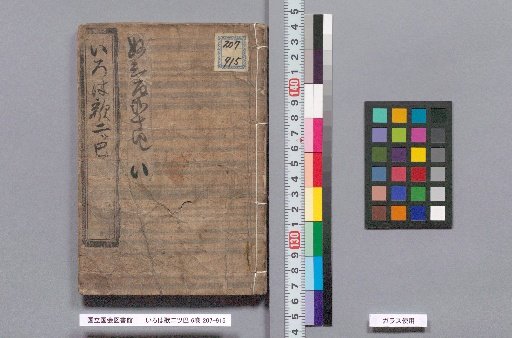 いろは歌二ツ巴
い
207
915
国立国会図書館 いろは歌二ツ巴 6巻 207-915
ガラス使用
5
4
3
2
1
140
9
8
7
6
5
4
3
2
1
130
9
8
7
6
5
4